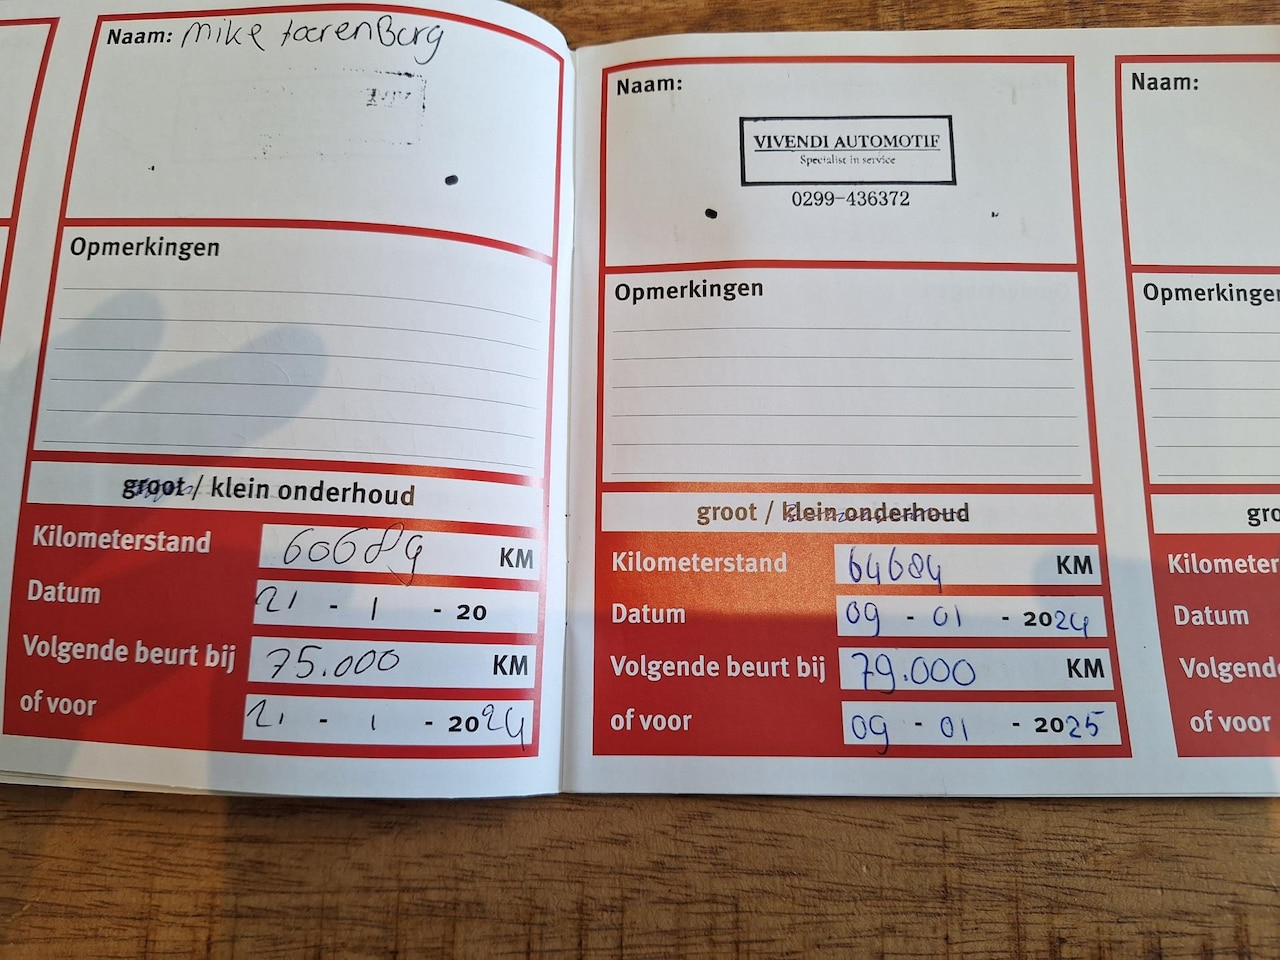 Naam: Mike toerenBurg
Opmerkingen
groot / klein onderhoud
Kilometerstand 60689 KM
Datum 21 - 1 - 20
Volgende beurt bij 75.000 KM
of voor 21 - 1 - 2024
Naam:
VIVENDI AUTOMOTIF
Specialist in service
0299-436372
Opmerkingen
groot / klein onderhoud
Kilometerstand 64684 KM
Datum 09 - 01 - 2024
Volgende beurt bij 79.000 KM
of voor 09 - 01 - 2025
Naam:
Opmerkinge
gro
Kilometer
Datum
Volgend
of voor